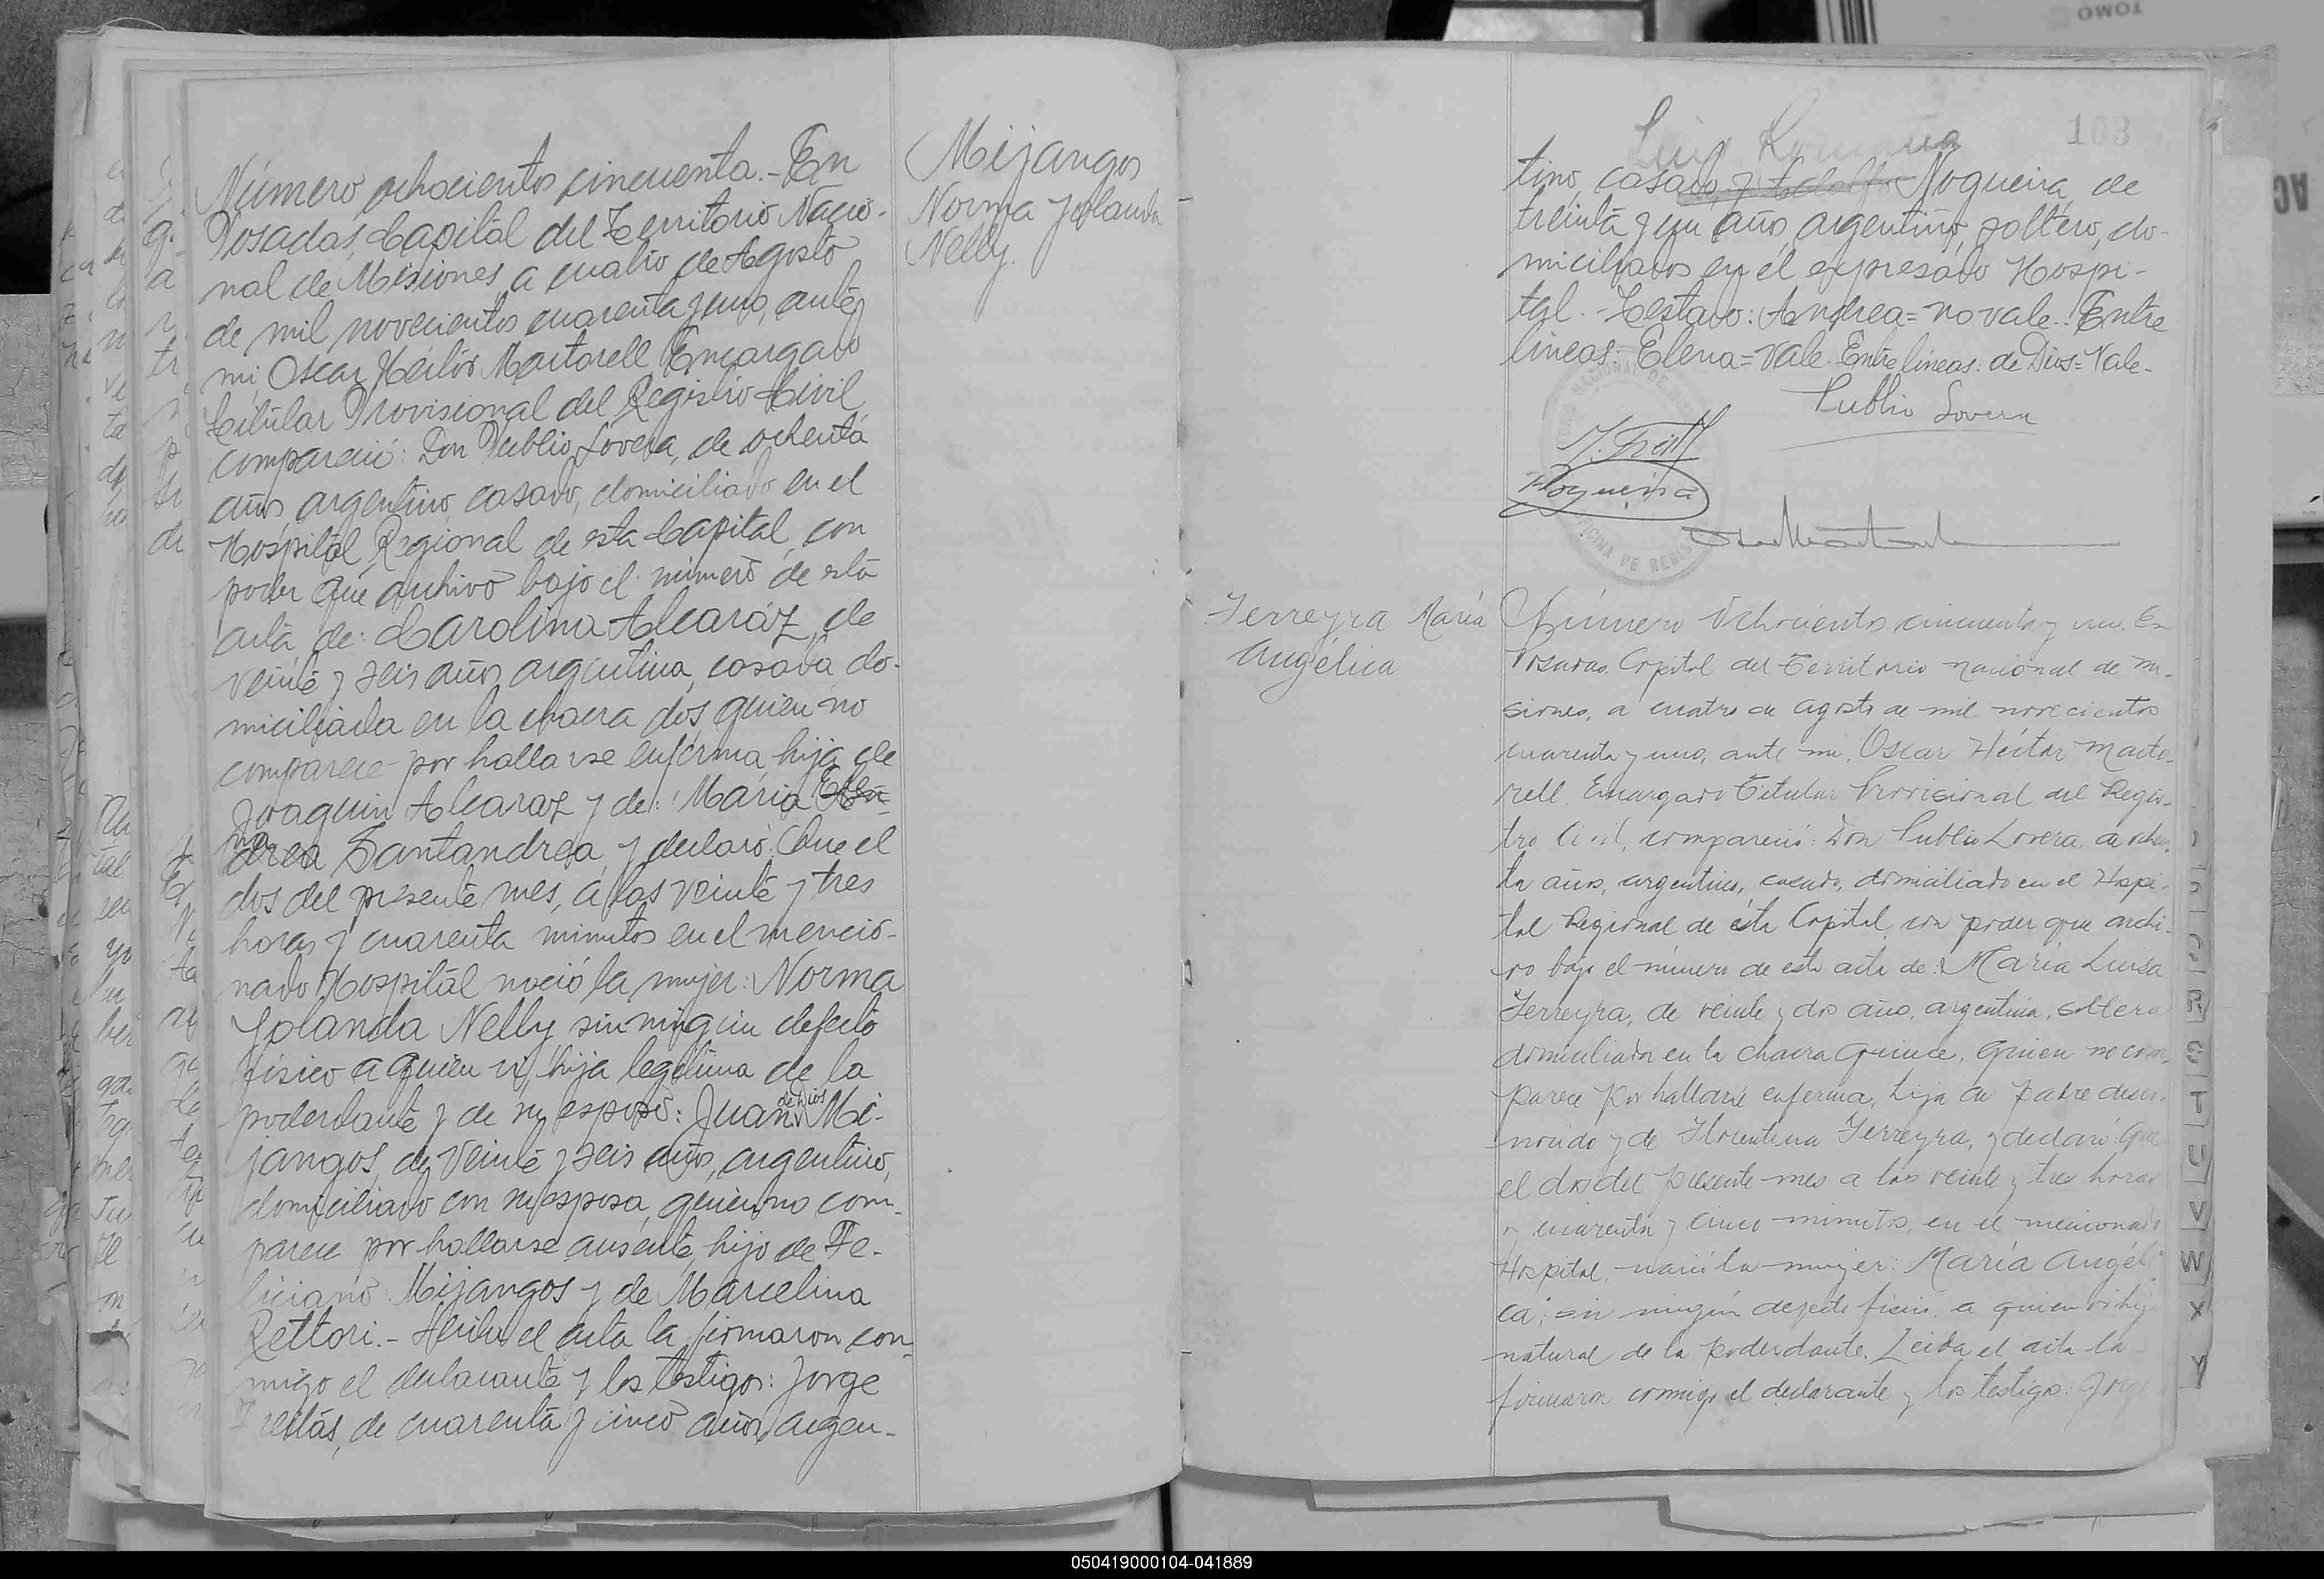 Número ochocientos cincuenta.- En
Posadas, Capital del Territorio Nacio-
nal de Misiones, a cuatro de Agosto
de mil novecientos cuarenta y uno, ante
mi Oscar Héctor Martorell Encargado
Titular Provisional del Registro Civil,
compareció: Don Publio Lovera, de ochenta
años, argentino, casado, domiciliado en el
Hospital Regional de esta Capital, con
poder que archivo bajo el número de esta
acta de: Carolina Alcaráz, de
veinte y seis años, argentina, casada do-
miciliada en la chacra dos, quien no
comparece por hallarse enferma, hija de
Joaquin Alcaraz y de: María
Santandrea, y declaró: Que el
dos del presente mes, a las veinte y tres
horas y cuarenta minutos en el mencio-
nado Hospital nació la mujer: Norma
Yolanda Nelly sin ningún defecto
físico a quien vi, hija legítima de la
poderdante y de su esposo: Juan de Dios Mi-
jangos, de veinte y seis años, argentino,
domiciliado con su esposa, quien no com-
parece por hallarse ausente, hijo de Fe-
liciano Mijangos y de Marcelina
Rettori.- el acta la firmaron con-
migo el declarante y los testigos: Jorge
de cuarenta y cinco años, argen-
Mijangos
Norma Yolanda
Nelly.
103
Luis
tino, casado, y Nogueira, de
treinta y un años, argentino, soltero, do-
miciliados en el expresado Hospi-
tal.- Testado: Andrea= no vale.- Entre
líneas: Elena= Vale. Entre líneas: de Dios= Vale.-
Publio Lovera
Nogueira
Ferreyra María
Angélica
Número Ochocientos cincuenta y uno. En
Posadas, Capital del Territorio nacional de Mi-
siones, a cuatro de agosto de mil novecientos
cuarenta y uno, ante mi, Oscar Héctor Marto-
rell, Encargado Titular Provisional del Regis-
tro Civil, compareció: Don Publio Lovera, de ochen-
ta años, argentino, casado, domiciliado en el Hospi-
tal Regional de ésta Capital, con poder que archi-
vo bajo el número de esta acta de: María Luisa
Ferreyra, de veinte y dos años, argentina, soltera
domiciliada en la chacra quince, quien no com-
parece por hallarse enferma, hija de padre desco-
nocido y de Florentina Ferreyra, y declaró: Que
el dos del presente mes a las veinte y tres horas
y cuarenta y cinco minutos, en el mencionado
Hospital, nació la mujer: María Angéli
ca, sin ningún defecto físico, a quien vi hija
natural de la poderdante. Leida el acta la
firmaron conmigo el declarante y los testigos: Jorge
R
S
T
U
V
W
X
Y
050419000104-041889